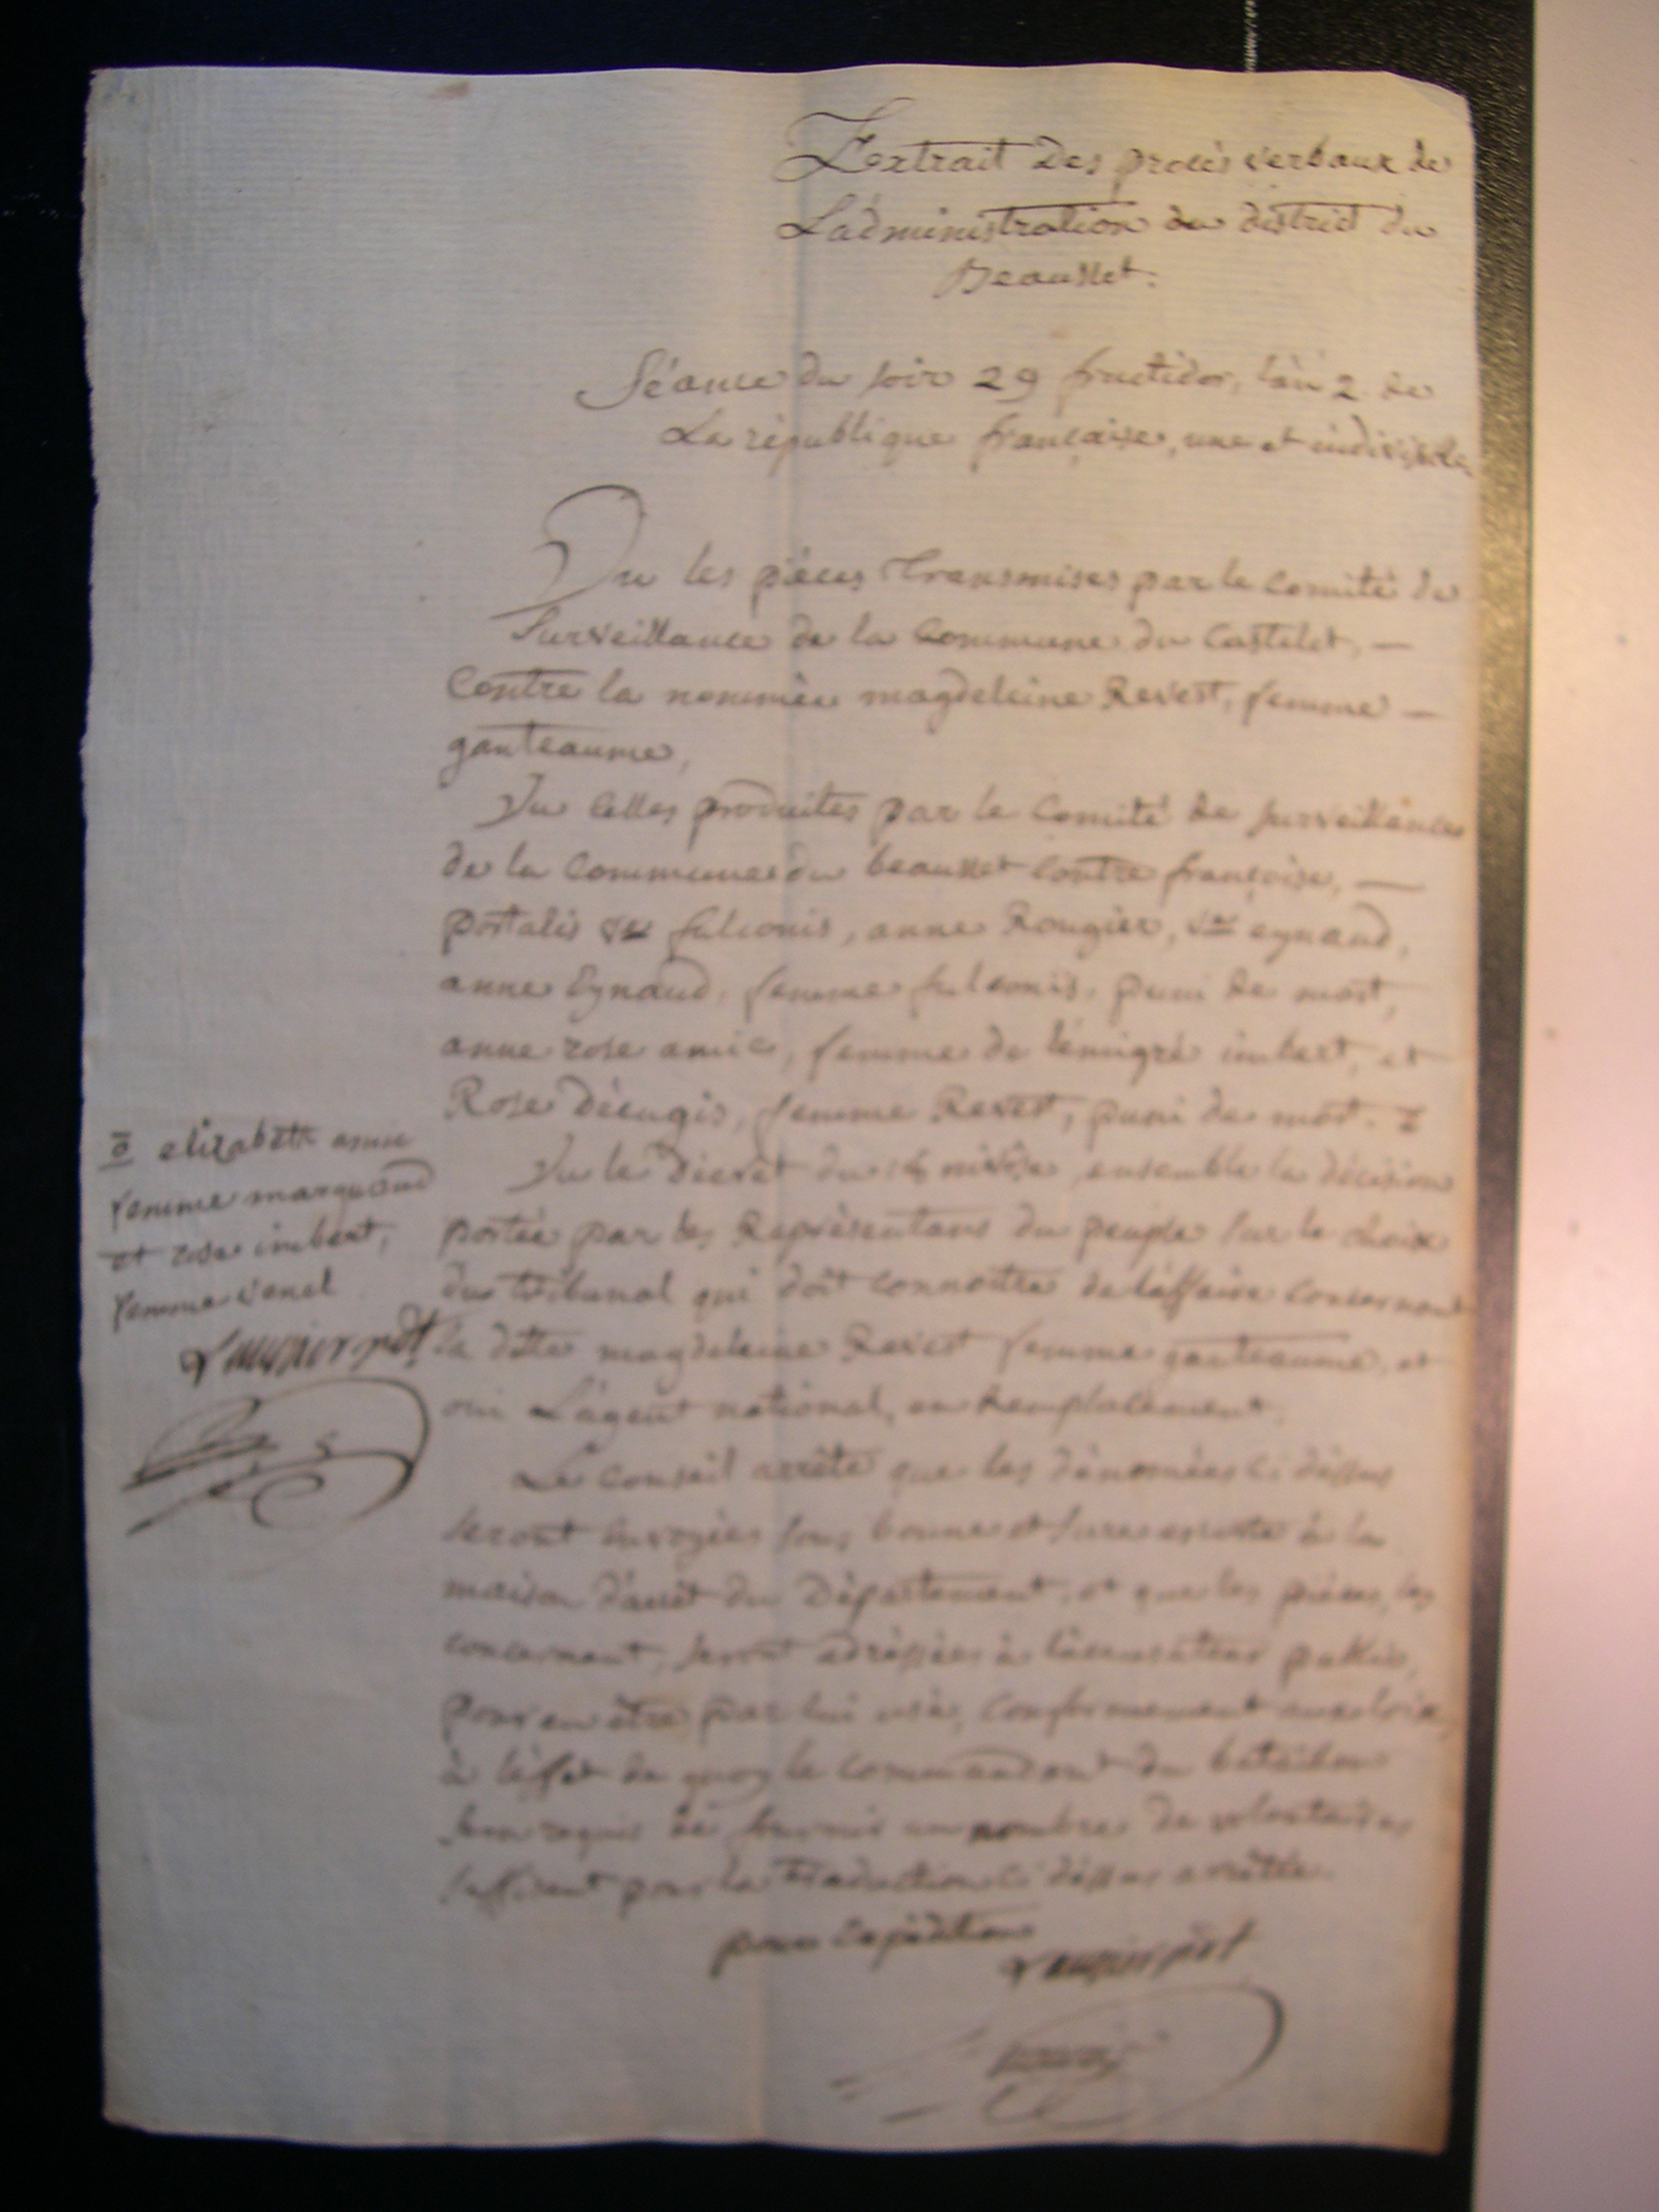 Extrait des procès verbaux de
L'administration du district du
Beausset.
Séance du soir 29 fructidor, l'an 2 de
La république française, une et indivisible
Vu les pièces transmises par le Comité de
Surveillance de la Commune du Castelet, —
Contre la nommée magdeleine Revest, femme —
ganteaume,
Vu celles produites par le Comité de surveillance
de la Commune du beausset Contre françoise, —
portalis ve fulconis, anne Rougier, ve eynaud,
anne Eynaud, femme fulconis, puni de mort,
anne rose amic, femme de l'émigré imbert, et
Rose Décugis, femme Revest, puni de mort.
elizabeth amic
femme marquand
et rose imbert,
femme
Vu le Décret du nivôse, ensemble la décision
portée par les Représentans du peuple sur le choix
du tribunal qui doit connoitre de l'affaire concernant
la ditte magdeleine Revest femme ganteaume, et
oui L'agent national, en Remplacement,
Le Conseil arrête que les dénomées ci dessus
seront envoyées sous bonne et sure escorte à la
maison d'arrêt du Département, et que les pièces, les
concernant, seront adressées à l'accusateur public,
pour en être par lui usé, conformement aux loix,
à l'effet de quoy le commandant du bataillon
sera requis de fournir un nombre de volontaires
suffisant pour la traduction ci dessus arrêtée.
pour Expédition